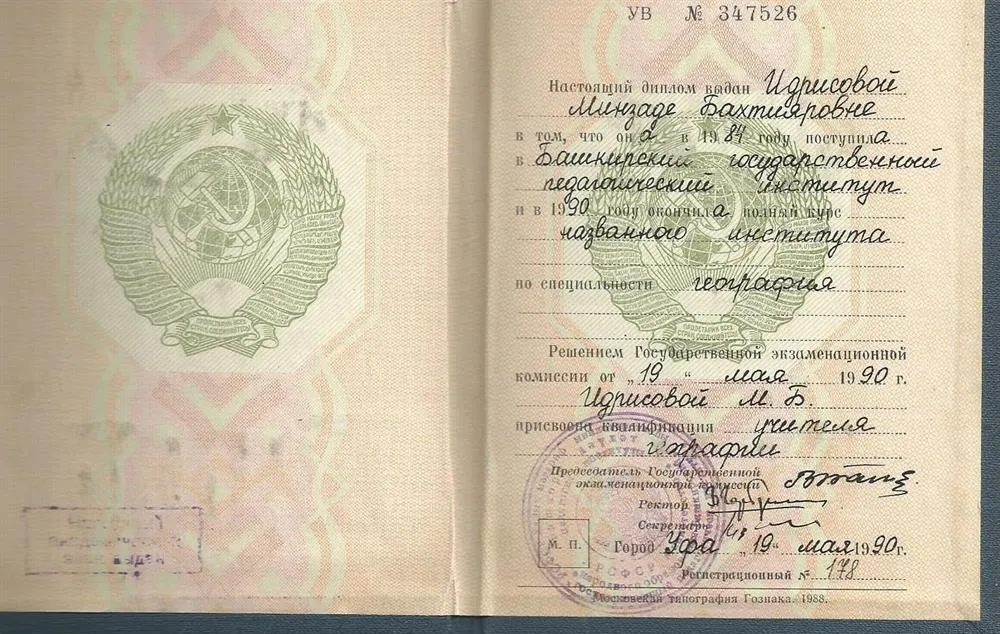 УВ № 347526
Настоящий диплом выдан Идрисовой
Минзаде Бахтияровне
в том, что она в 1987 году поступила
в Башкирский государственный
педагогический институт
и в 1990 году окончила полный курс
названного института
по специальности география
Решением Государственной экзаменационной
комиссии от „19“ мая 1990 г.
Идрисовой М. Б.
присвоена квалификация учителя
географии
Председатель Государственной
экзаменационной комиссии
Ректор
Секретарь
М. П. Город Уфа „19“ мая 1990 г.
Регистрационный № 178
Московская типография Гознака. 1988.
ПРОЛЕТАРИИ ВСЕХ
СТРАН, СОЕДИНЯЙТЕСЬ!
РСФСР
выдан